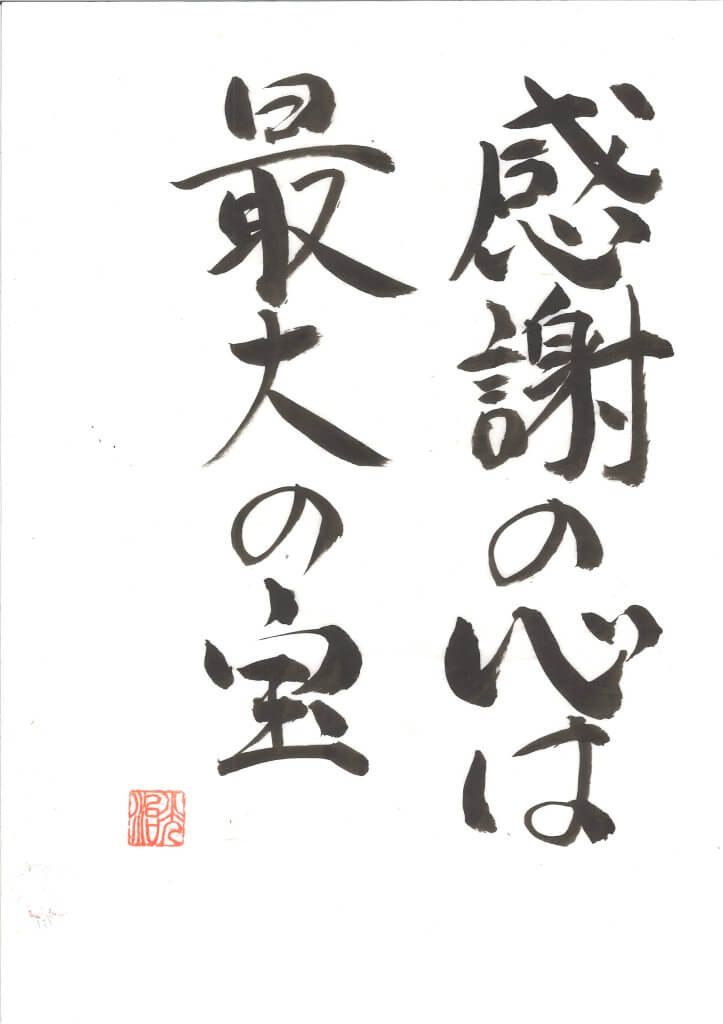 感謝の心は
最大の宝